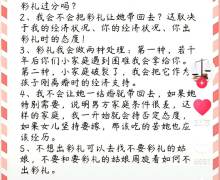 彩礼过分吗？
2、我会不会把彩礼让她带回去？这取决
于我的经济状况、你的经济状况、你出
彩礼时的态度！
3、彩礼我会做两种处理：第一种，若干
年后你们小家庭遇到困难我会拿给你。
第二种，小家庭破裂了，我会把它作为
孩子刚离婚时的经济支持。
4、我不会让她一结婚就带回去，如果她
特别需要，说明男方家庭条件很差，这
样的家庭，我一开始就会持否定态度，
如果女儿坚持要嫁，那该吃的苦她也应
该经历。
5、不想出彩礼可以去找不要彩礼的姑
娘，不要和要彩礼的姑娘周旋着如何不
出彩礼。